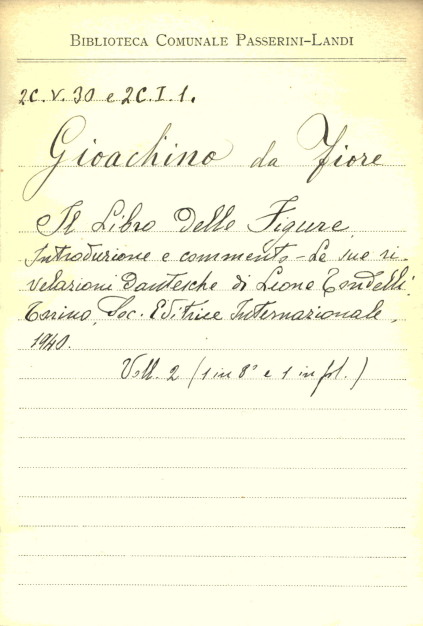 BIBLIOTECA COMUNALE PASSERINI-LANDI
2C.V.30 e 2C.I.1.
Gioachino da Fiore
Il Libro delle Figure
Introduzione e commento - Le sue ri-
velazioni Dantesche di Leone Tondelli.
Torino, Soc. Editrice Internazionale,
1940.
Voll. 2 (1 in 8° e 1 in fol.)